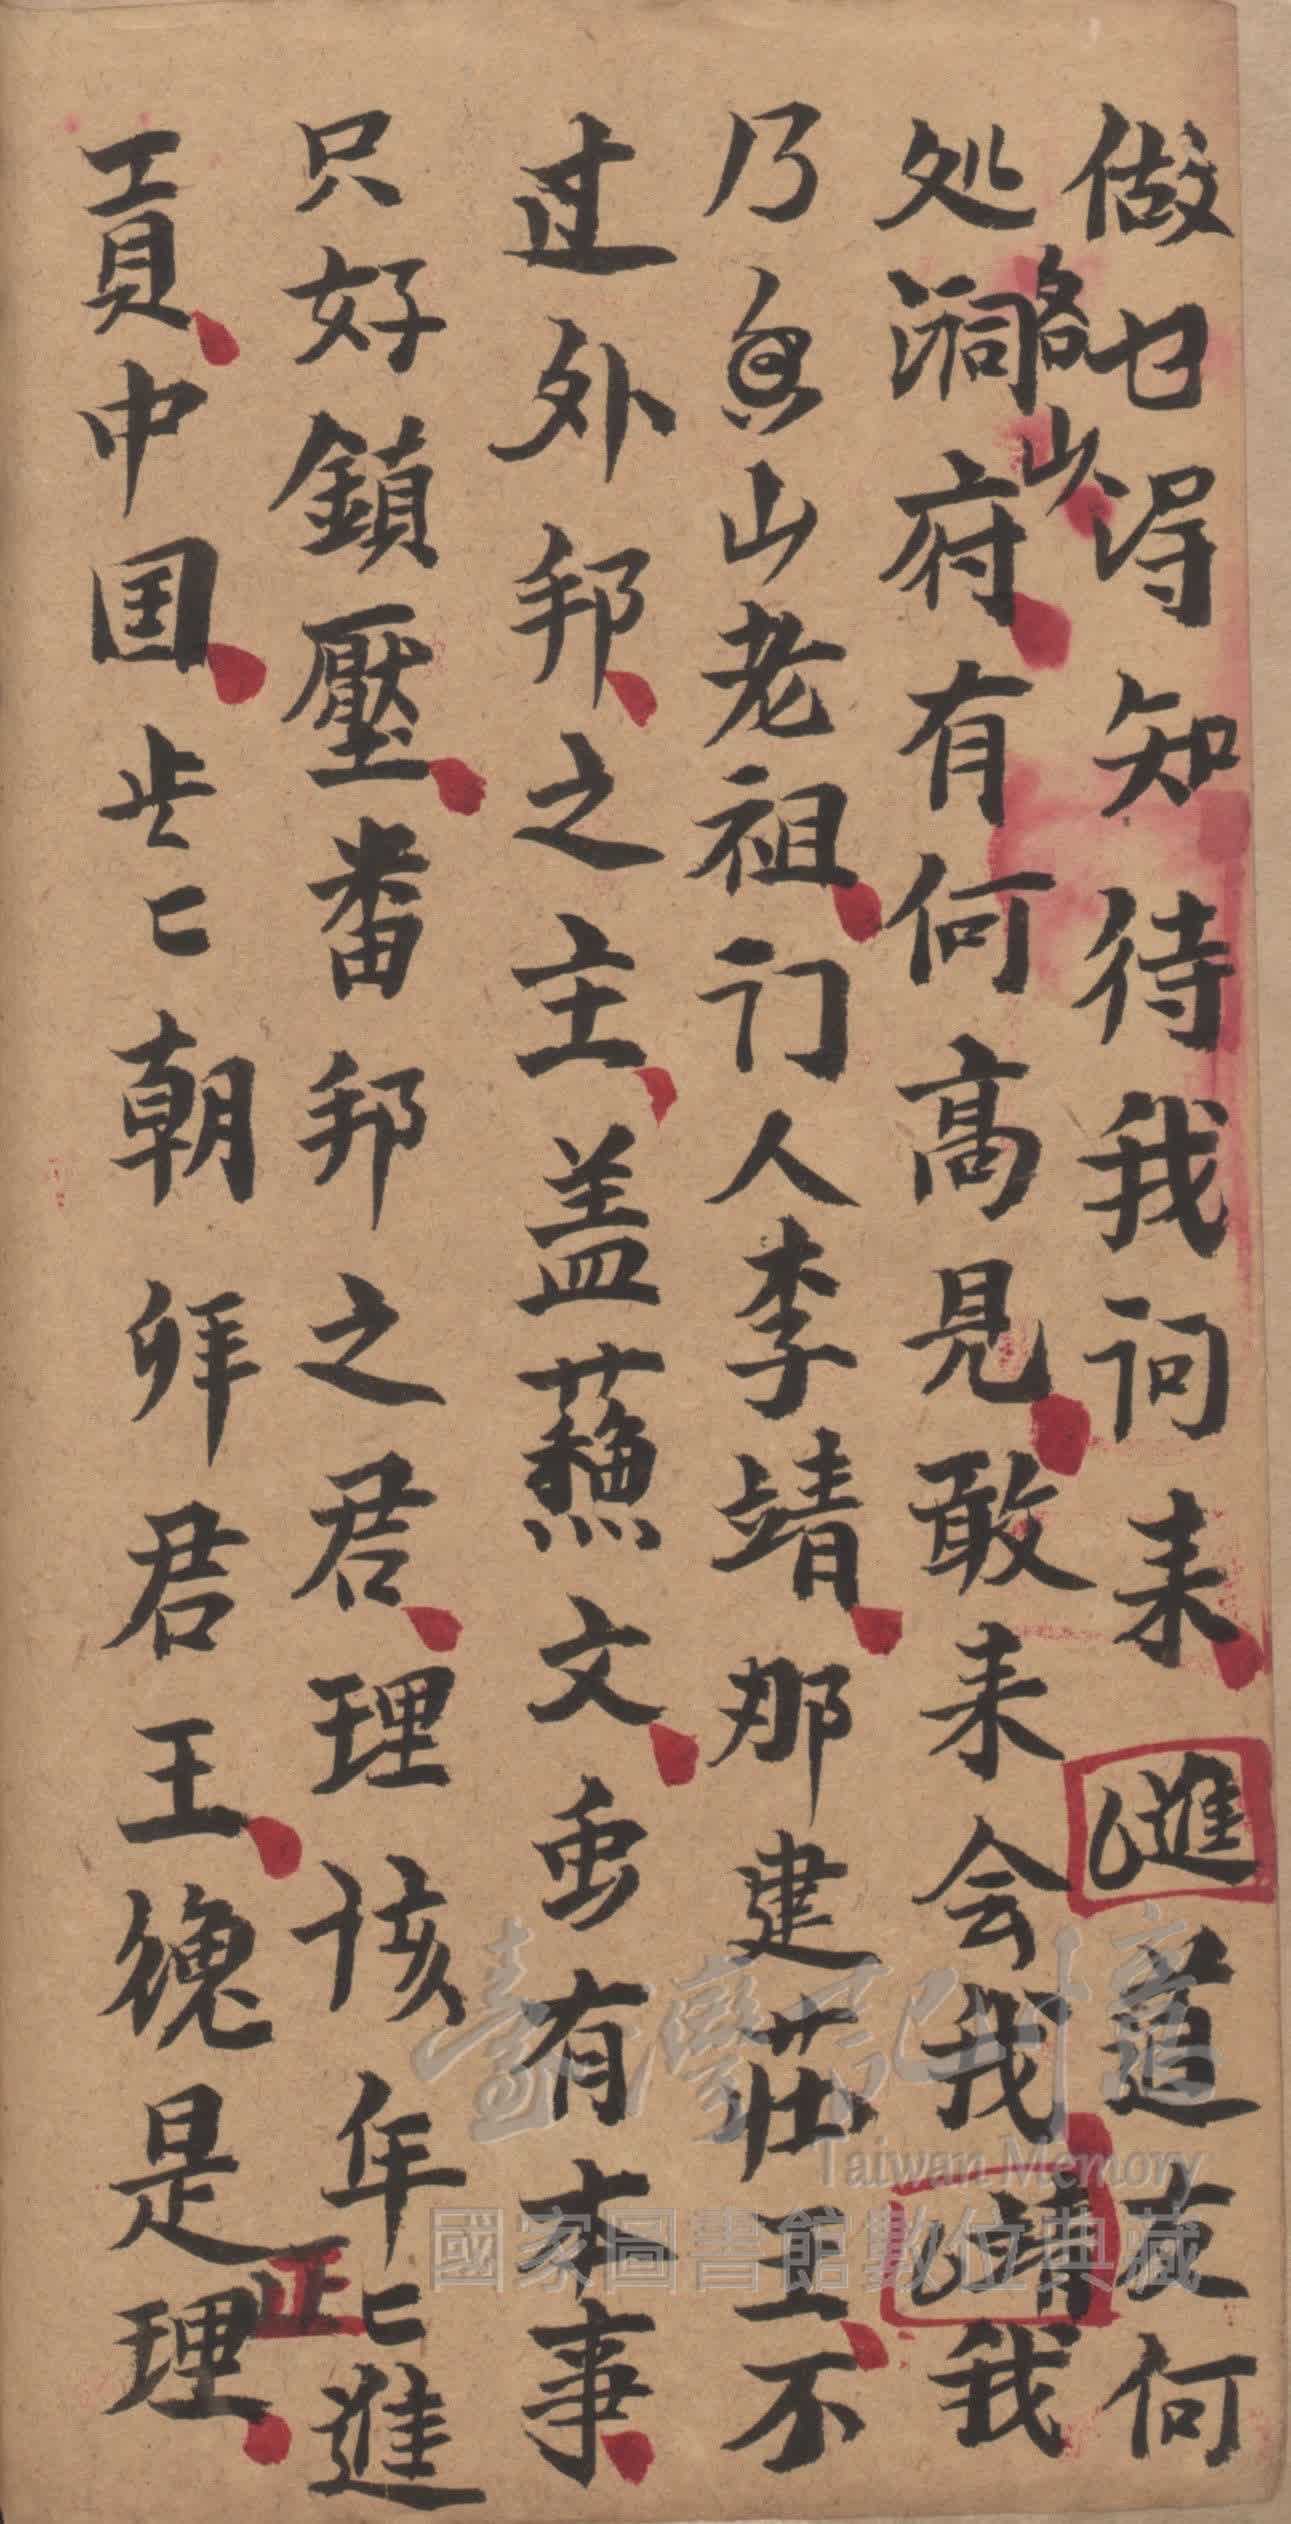 做乜得知待我问来進乚道友何
处洞府有何高見敢来会我靖乚我
洛山
乃山老祖门人李靖那建荘王不
过外邦之主盖蘓文虽有本事
只好鎖壓番邦之君理该年匕進
貢中国歩匕朝拜君王終是理
正
臺灣記憶
Taiwan Memory
國家圖書館數位典藏